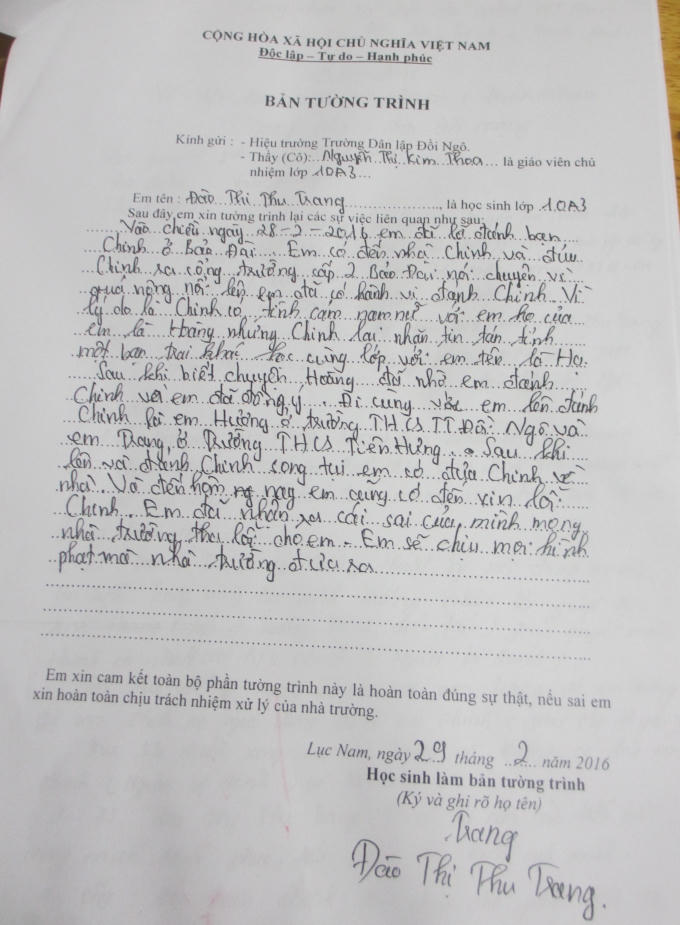 CỘNG HÒA XÃ HỘI CHỦ NGHĨA VIỆT NAM
Độc lập – Tự do – Hạnh phúc
BẢN TƯỜNG TRÌNH
Kính gửi : - Hiệu trưởng Trường Dân lập Đồi Ngô.
- Thầy (Cô):...Nguyễn Thị Kim Thoa... là giáo viên chủ
nhiệm lớp 10A3...
Em tên : Đào Thị Thu Trang..................., là học sinh lớp 10A3
Sau đây em xin tường trình lại các sự việc liên quan như sau:
Vào chiều ngày 28-2-2016 em đã đánh bạn
Chinh ở Bảo Đài. Em có đến nhà Chinh và đưa
Chinh ra cổng trường cấp 2 Bảo Đài nói chuyện vì
quá nông nổi lên em đã có hành vi đánh Chinh. Vì
lý do là Chinh có tình cảm nam nữ với em họ của
em là Hoàng nhưng Chinh lại nhắn tin tán tỉnh
một bạn trai khác học cùng lớp với em tên là
Sau khi biết chuyện Hoàng đã nhờ em đánh
Chinh và em đã đồng ý. Đi cùng với em lên đánh
Chinh là em Hương ở trường THCS TT Đồi Ngô và
em Trang ở Trường THCS Tiên Hưng. Sau khi
lên và đánh Chinh song tụi em có đưa Chinh về
nhà. Và đến hôm nay em cũng có đến xin lỗi
Chinh. Em đã nhận ra cái sai của mình mong
nhà trường tha lỗi cho em. Em sẽ chịu mọi hình
phạt mà nhà trường đưa ra
Em xin cam kết toàn bộ phần tường trình này là hoàn toàn đúng sự thật, nếu sai em
xin hoàn toàn chịu trách nhiệm xử lý của nhà trường.
Lục Nam, ngày 29 tháng ..2... năm 2016
Học sinh làm bản tường trình
(Ký và ghi rõ họ tên)
Trang
Đào Thị Thu Trang.